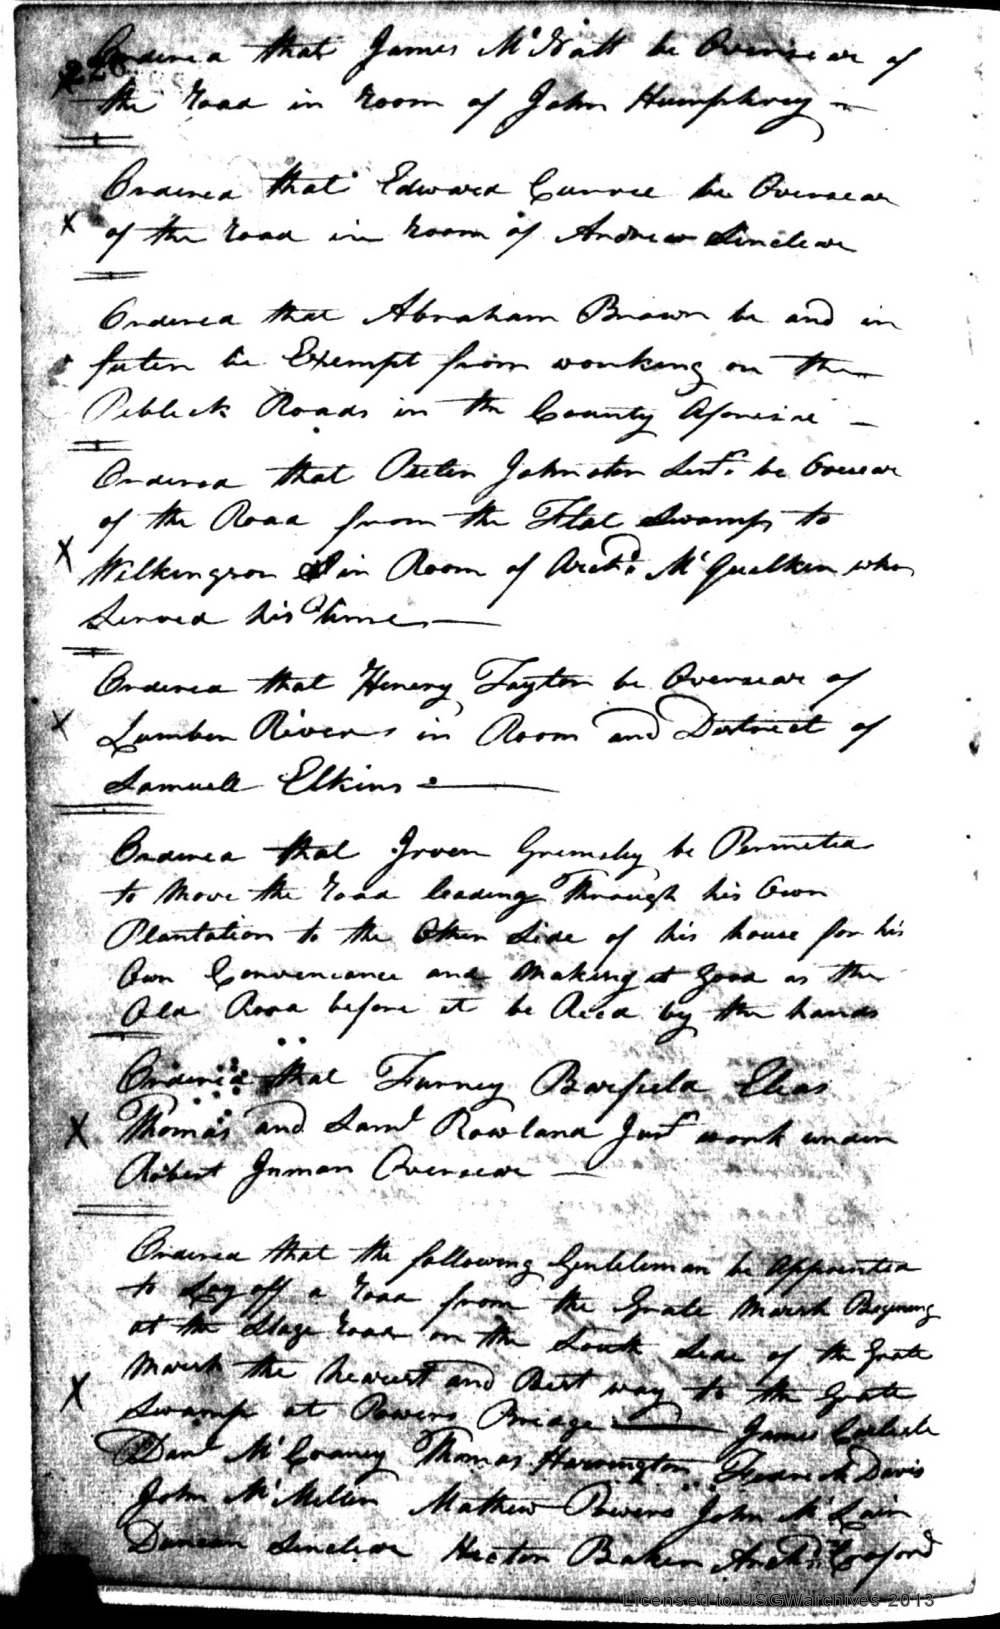 226
Ordered that James McNatt be Overseear of
the road in room of John Humphrey
Ordered that Edward Currie be Overseear
of the road in room of Andrew Sinclear
Ordered that Abraham Brown be and in
futer be Exempt from working on the
Publick Roads in the County Aforesaid
Ordered that Peeter Johnston Senr. be Overseear
of the Road from the Flat Swamp to
Wilkingson in Room of Archd. McQualken who
Served his time
Ordered that Henery Taylor be Overseear of
Lumber River in Room and District of
Samuell Elkins
Ordered that Grimsley be Permeted
to Move the road leading Through his Own
Plantation to the Other Side of his house for his
Own Conveneance and Making it good as the
Old Road before it be Reed by the hands
Ordered that Furney Barfield Elias
Thomas and Saml Rowland Junr work under
Robert Inman Overseear
Ordered that the following Gentleman be Appointed
to Lay off a road from the Grate Marsh Begining
at the Stage road on the South Side of the Grate
Marsh the Nearest and Best way to the Grate
Swamp at Powers Bridge James Carlisle
Danl McCraney Thomas Harrington Fredrick Davis
John McMillen Mathew Powers John McLain
Duncan Sinclear Hector Baker Archd.
Licensed to USGWarchives 2013